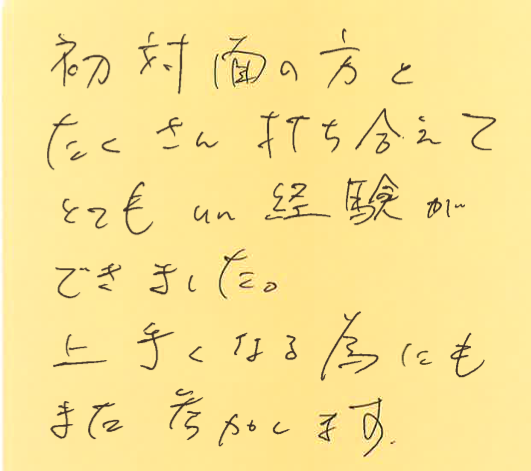 初対面の方と
たくさん打ち合えて
とてもいい経験が
できました。
上手くなる為にも
また参加します。